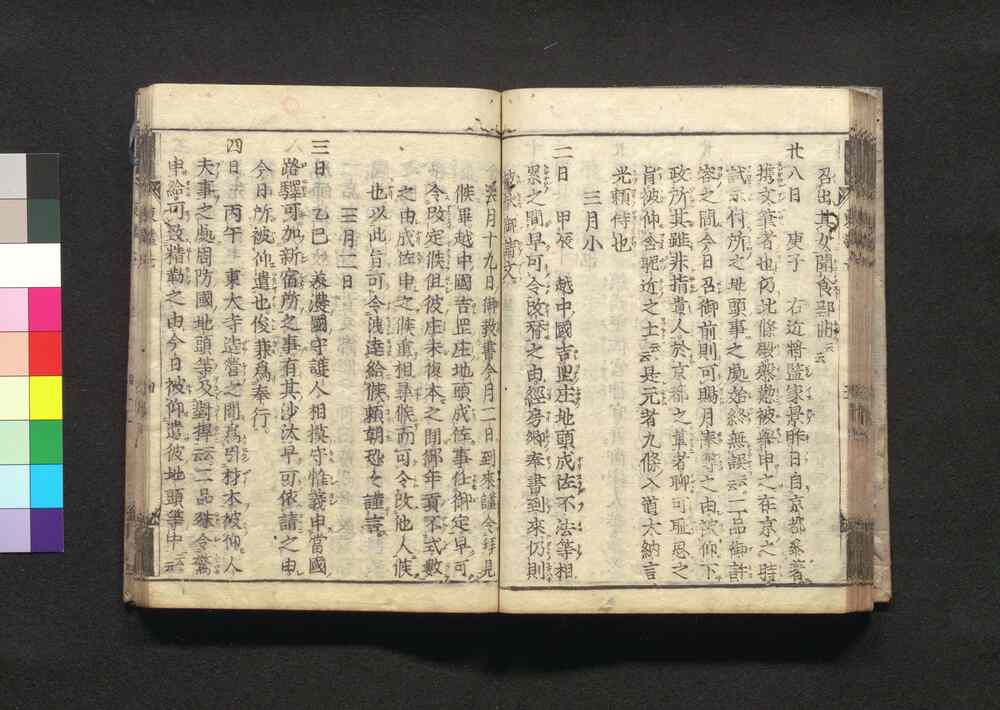 召出其外聞食部曲云云
廿八日 庚子 右近將監家景昨日自京都參著
携文筆者也仍北條殿慇懃被擧申之在京之時
試示付所之地頭事之處始終無誤云云二品御許
容之間今日召御前則可賜月俸等之由被仰下
政所其雖非指貴人於京都之輩者聊可耻思之
旨被仰含昵近之士云云是元者九條入道大納言
光頼侍也
三月小
二日 甲辰 越中國吉岡庄地頭成佐不法等相
累之間早可令改替之由經房卿奉書到來仍則
被獻御請文
去月十九日御教書今月二日到來謹令拜見
候畢越中國吉岡庄地頭成佐事任御定早可
令改定候但彼庄未復本之間御年貢不式數
之由成佐申之候重相尋候而可令改他人候
也以此旨可令洩達給候頼朝恐々謹言
三月二日
三日 乙巳 美濃國守護人相摸守惟義申當國
路驛可加新宿所之事有其沙汰早可依請之由
今日所被仰遣也俊兼爲奉行
四日 丙午 東大寺造營之間爲引材木被仰人
夫事之處周防國地頭等及對捍云云二品殊令驚
申給可致精勤之由今日被仰遣彼地頭等中云云